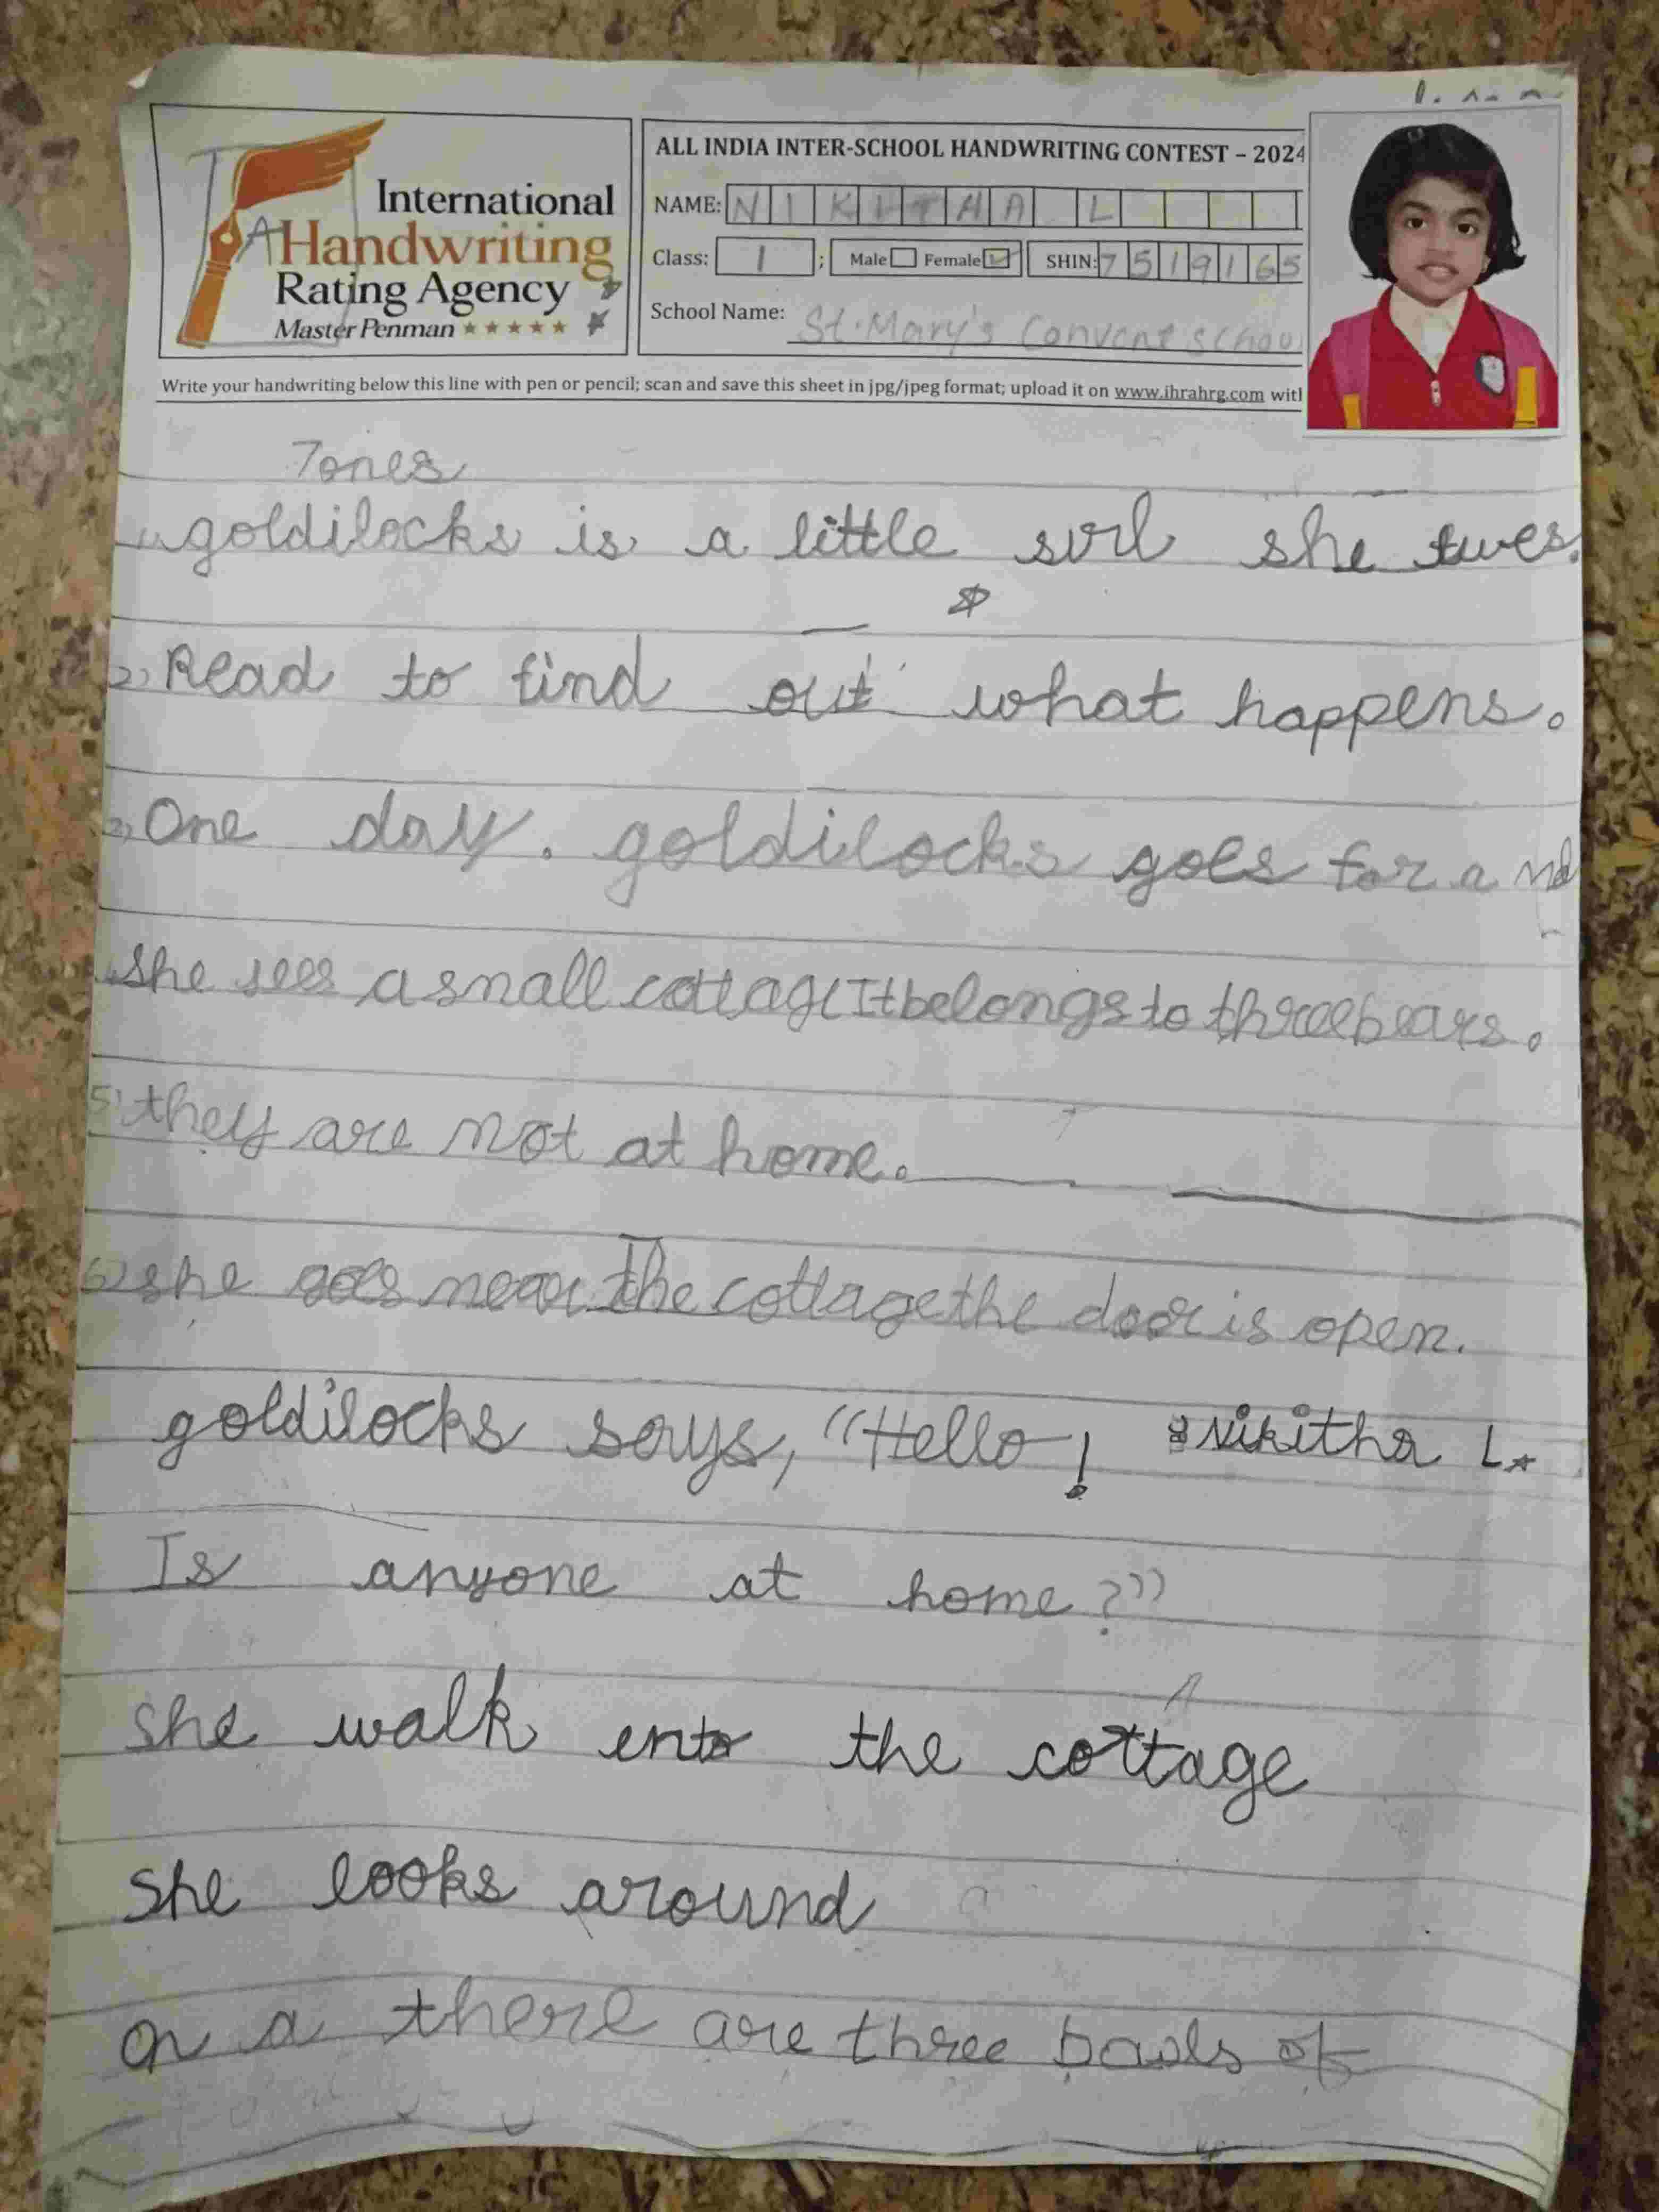 International
Handwriting
Rating Agency
Master Penman
ALL INDIA INTER-SCHOOL HANDWRITING CONTEST – 2024
NAME: NIKITHA L
Class: 1 ; Male Female SHIN: 7519165
School Name: St. Mary's Convent school
Write your handwriting below this line with pen or pencil; scan and save this sheet in jpg/jpeg format; upload it on www.ihrahrg.com with
Tones
goldilocks is a little sirl she
2) Read to find out what happens.
3) One day. goldilocks goes for a
she sees a small cottage It belongs to three bears.
5) they are not at home.
6) she goes near the cottage the door is open.
goldilocks says, “Hello! Nikitha L
Is anyone at home?”
she walk ento the cottage
she looks around
on a there are three of